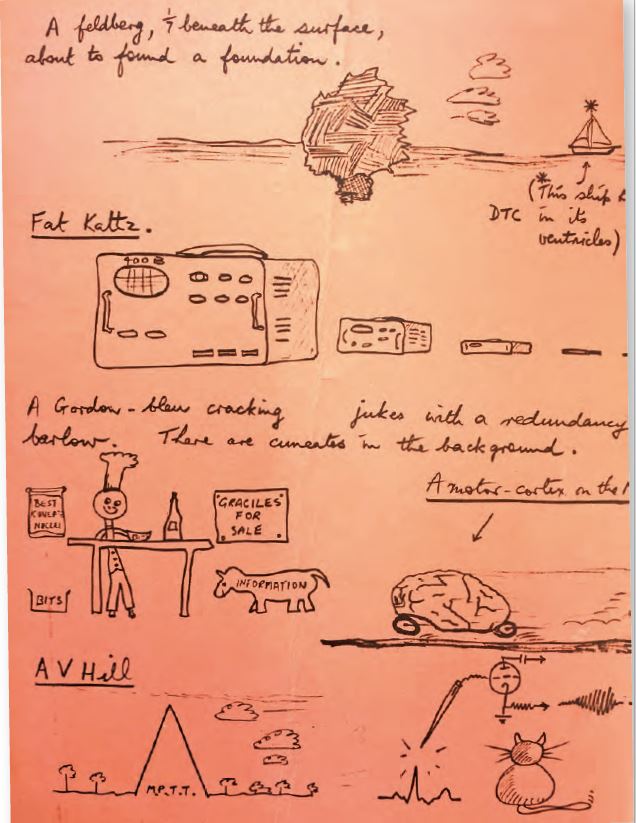 A feldberg, ⅐ beneath the surface,
about to found a foundation.
*
(This ship
DTC in its
ventricles)
Fat Kattz.
400B
A Gordon-bleu cracking jukes with a redundancy
barlow. There are cuneates in the background.
A motor-cortex on the
BEST
NUCLEI
GRACILES
FOR
SALE
BITS
INFORMATION
A V Hill
M.P.T.T.